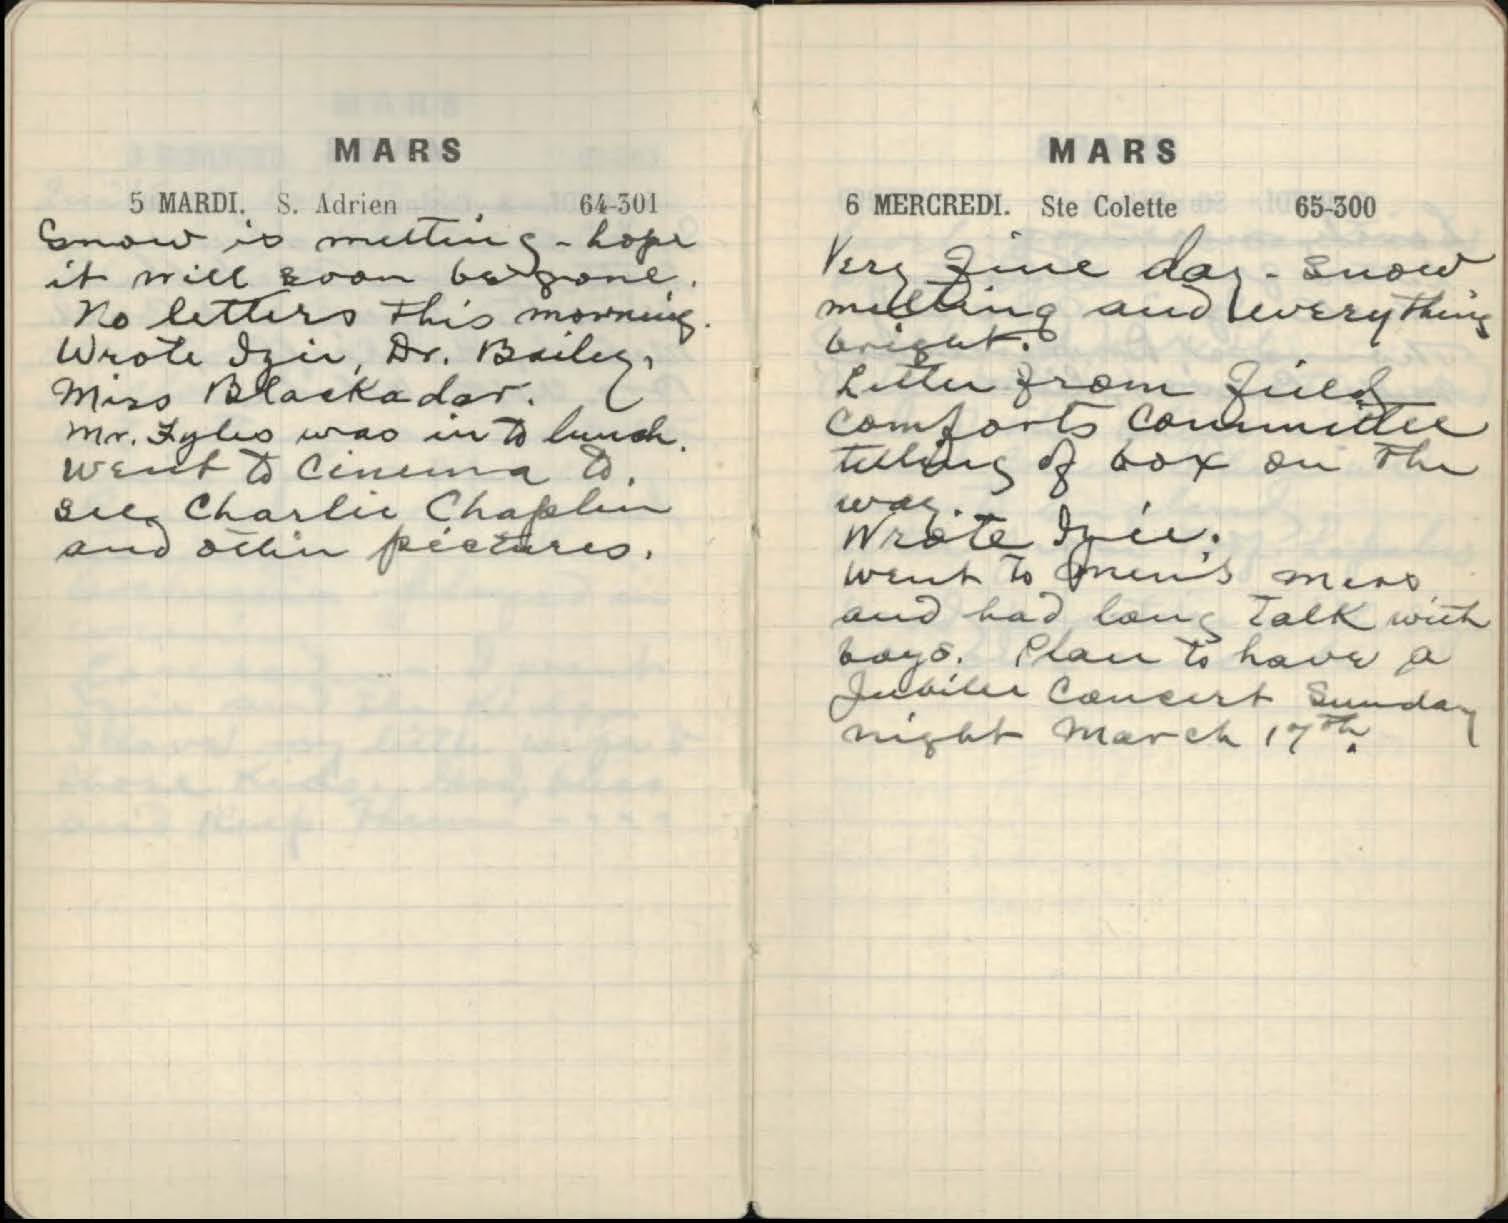 MARS
5 MARDI. S. Adrien 64-301
Snow is melting - hope
it will soon be gone.
No letters this morning.
Wrote Izie, Dr. Bailey,
Miss Blackadar.
Mr. Fyles was in to lunch.
Went to Cinema to
see Charlie Chaplin
and other pictures.
MARS
6 MERCREDI. Ste Colette 65-300
Very fine day - snow
melting and everything
bright.
Letter from Field
Comforts Committee
telling of box on the
way.
Wrote Izie.
Went to men's mess
and had long talk with
boys. Plan to have a
Jubilee Concert Sunday
night March 17th.